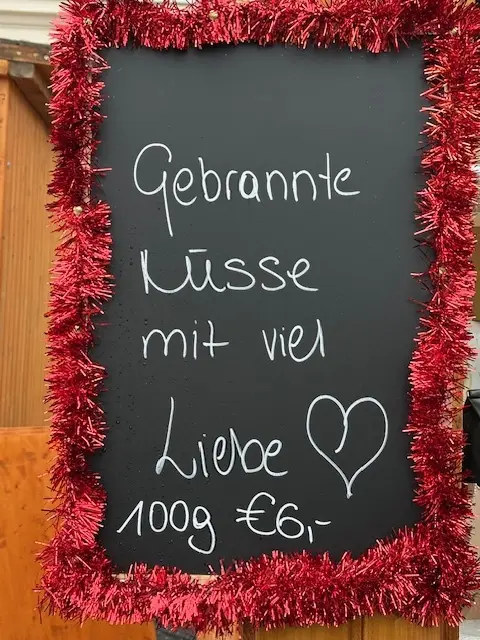 Gebrannte
Nüsse
mit viel
Liebe ♡
100g €6,-